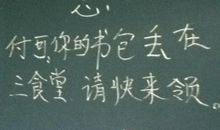 付可你的书包丢在
三食堂 请快来领。